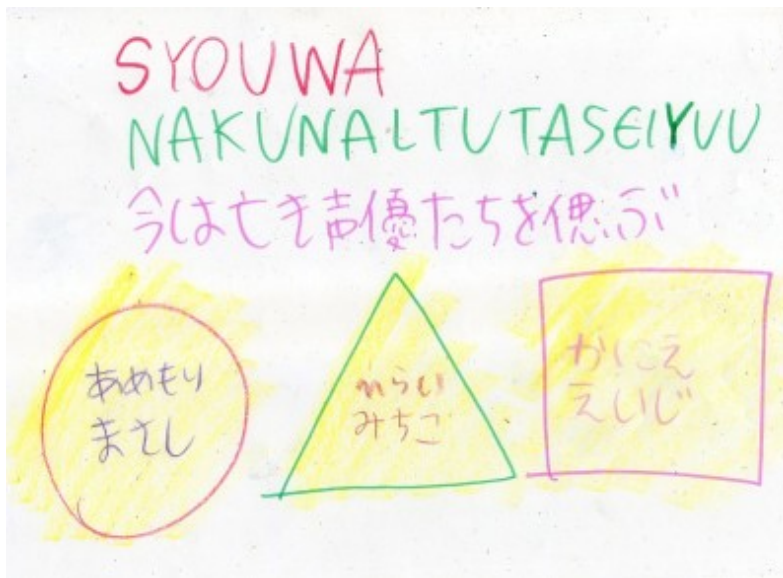 SYOUWA
NAKUNALTUTASEIYUU
今は亡き声優たちを偲ぶ
あめもり
まさし
みちこ
かにえ
えいじ